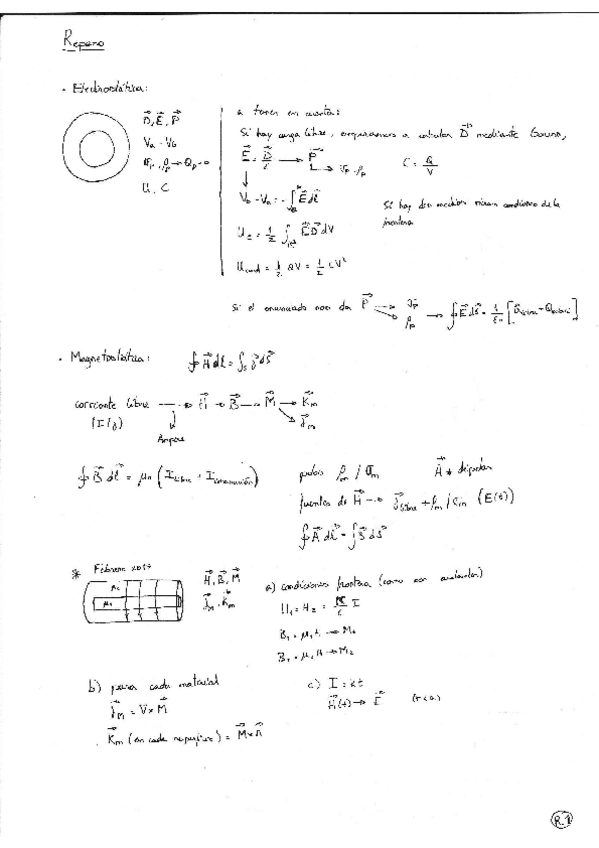 Repaso
· Electrostática:
D⃗, E⃗, P⃗
Va - Vb
σp, ρp → Qp = 0
U, C
a tener en cuenta:
Si hay carga libre, empezamos a calcular D⃗ mediante Gauss,
E⃗ = D⃗/ε → P⃗ → σp, ρp
C = Q/V
Vb - Va = -∫ E⃗ dl⃗
Si hay dos medios miramos condiciones de la
frontera
UE = 1/2 ∫ E⃗ D⃗ dV
Ucond = 1/2 QV = 1/2 CV²
Si el enunciado nos da P⃗ → σp, ρp → ∮ E⃗ ds⃗ = 1/ε0 [Qlibre + Q]
· Magnetostática: ∮ H⃗ dl⃗ = ∫s J⃗ ds⃗
corriente libre → H⃗ → B⃗ → M⃗ → K⃗m
(I/J) J⃗m
Ampere
∮ B⃗ dl⃗ = μ0 (Ilibre + Iimanación)
polos ρm / σm A⃗ dipolar
fuentes de H⃗ → J⃗libre + ρm / σm (E(t))
∮ A⃗ dl⃗ = ∫ B⃗ ds⃗
* Febrero
H⃗, B⃗, M⃗
J⃗m, K⃗m
a) condiciones frontera
H1 = H2 = I
B1 = μ1 H → M1
B2 = μ2 H → M2
b) para cada material
J⃗M = ∇ × M⃗
K⃗m (en cada superficie) = M⃗ × n⃗
c) I = kt
H⃗(t) → E⃗
R.1